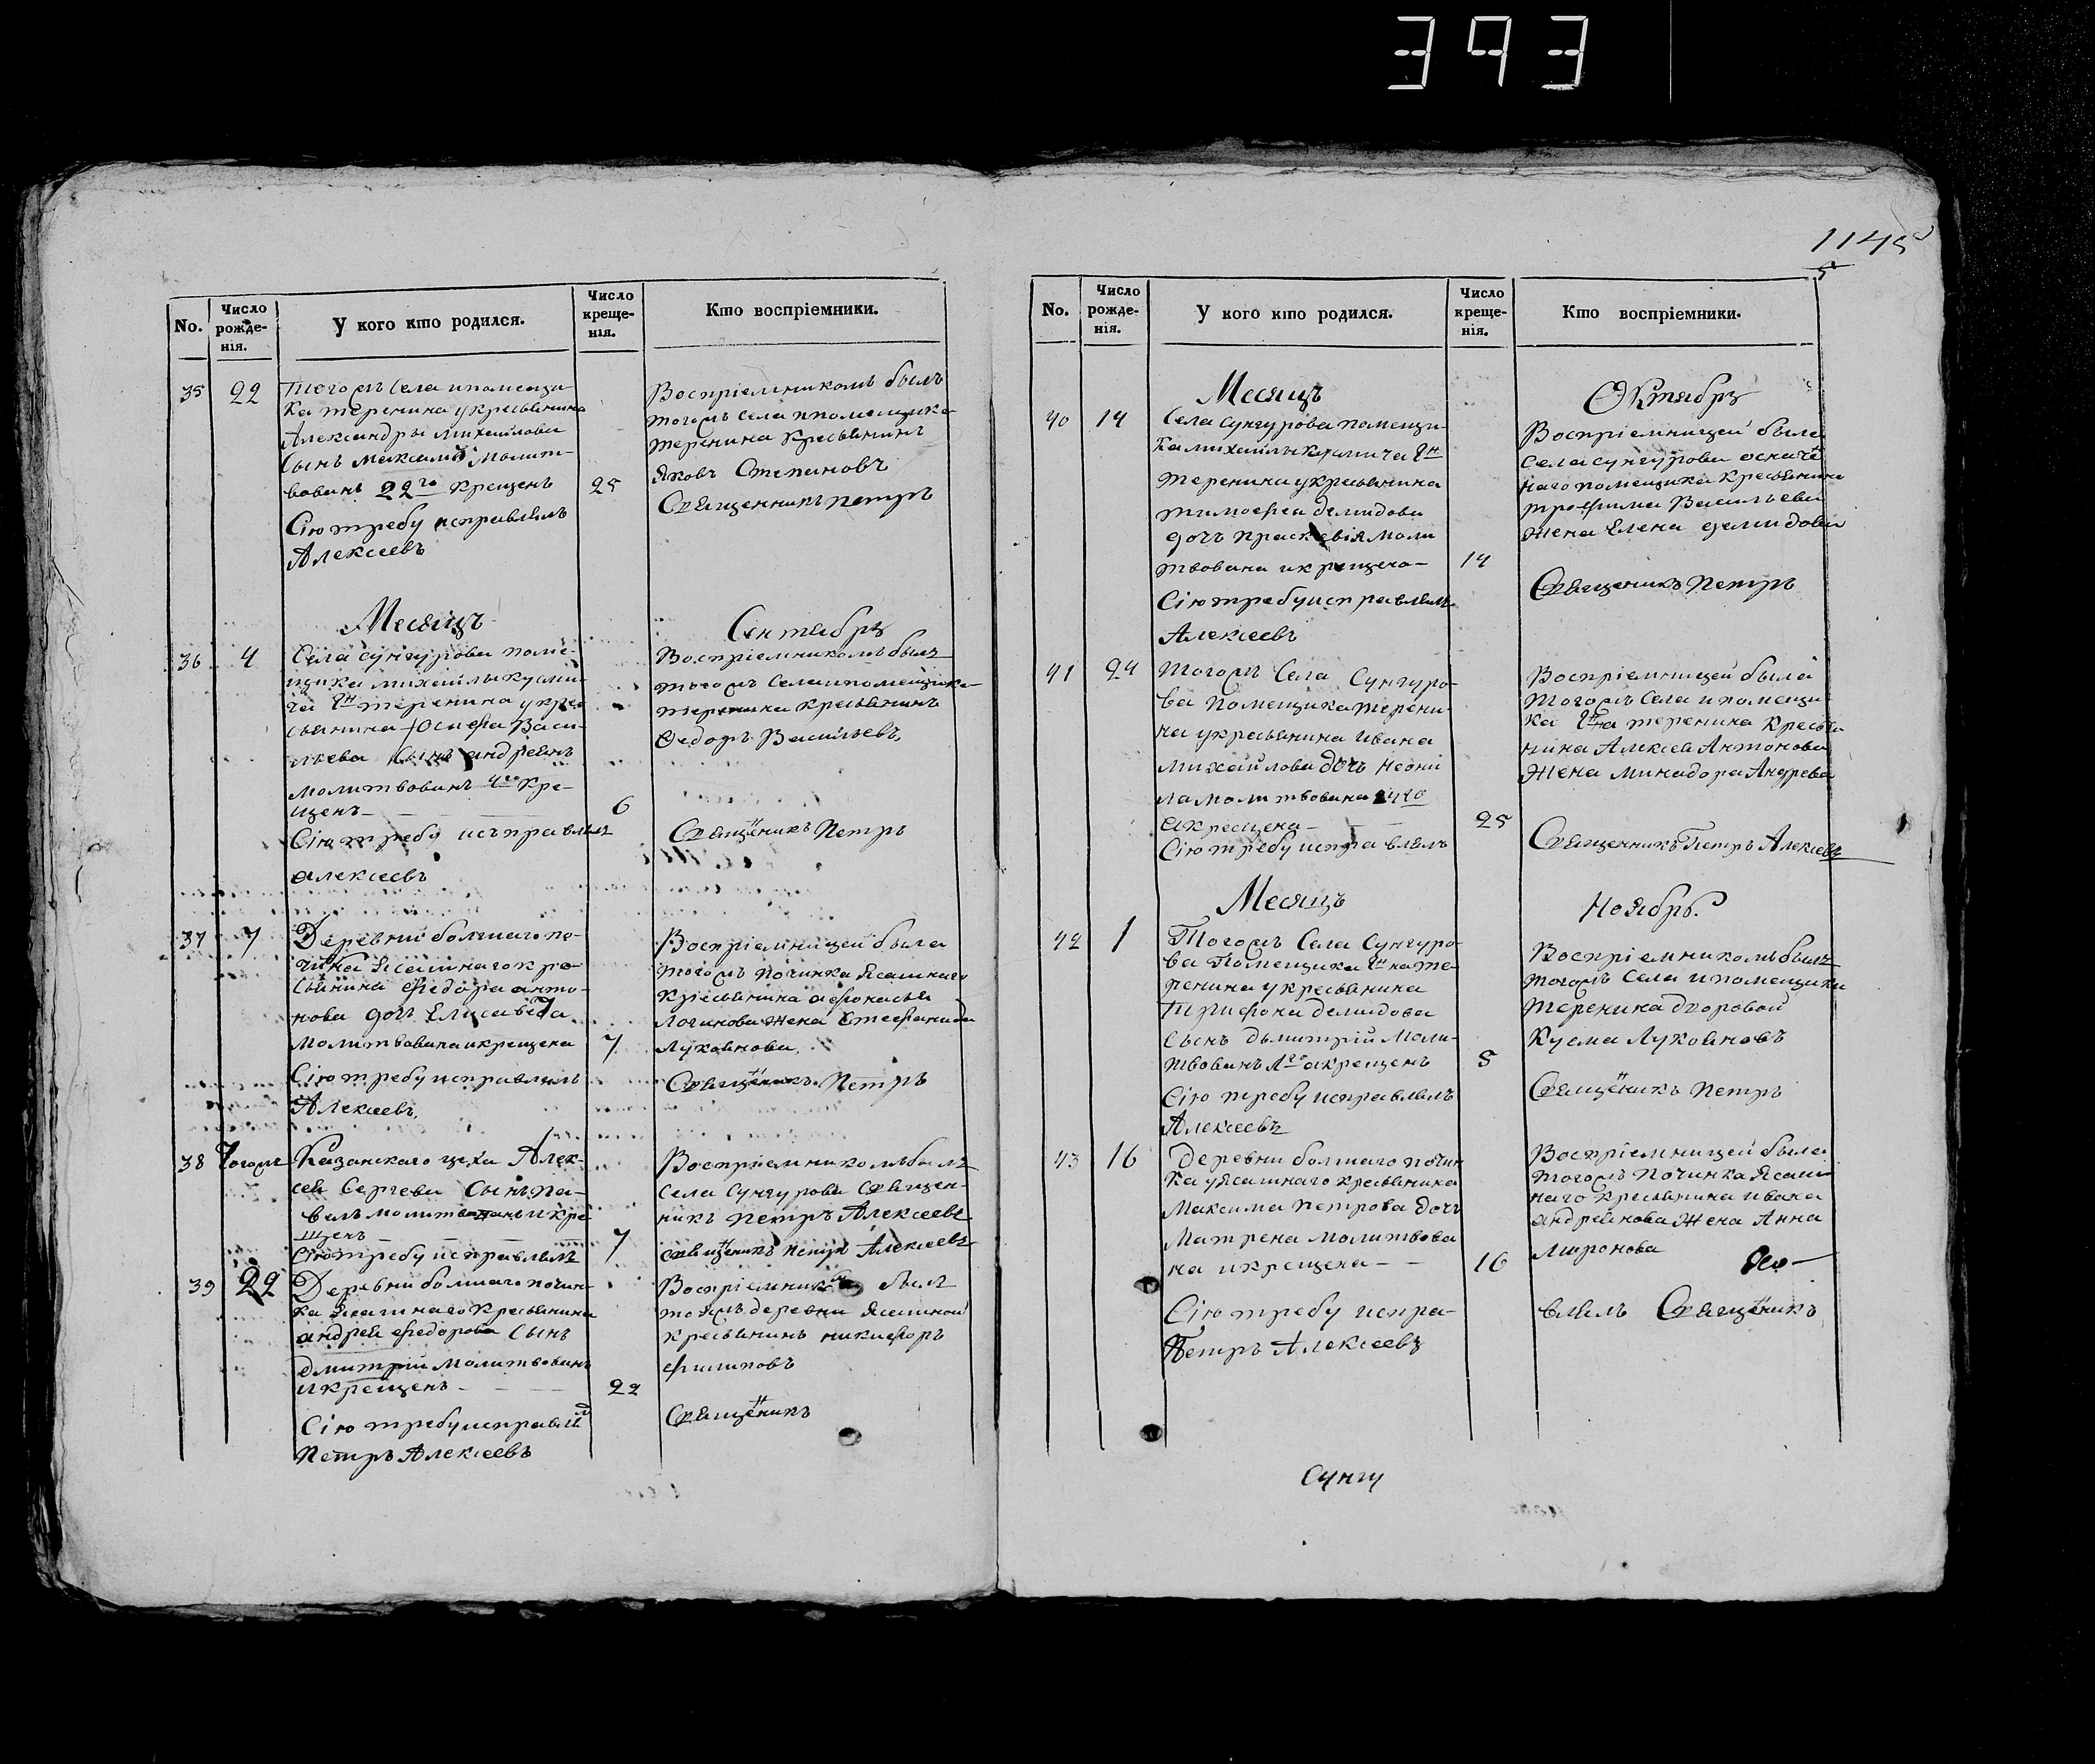 393
1145
5
No.
Число рожде-нія.
У кого кто родился.
Число креще-нія.
Кто воспріемники.
35 22 Тогожъ села и помещи-
ка теренина у кресьянина
Александры михайлова
Сынъ максимъ молит-
вованъ 22го крещенъ 25
Сію требу исправлялъ
Алексеевъ
Воспріемникомъ былъ
тогожъ села и помещика
теренина кресьянинъ
Яковъ Степановъ
Священникъ петръ
Месяцъ Сентябрь
36 4 Села сунгурова поме-
щика михайлы кузми-
ча Гн теренина у кре-
сьянина Iосифа Васи-
льева Сынъ андреянъ
молитвованъ 4го кре-
щенъ 6
Сію требу исправлялъ
алексеевъ
Воспріемникомъ былъ
тогожъ села и помещика
теренина кресьянинъ
Федоръ Васильевъ
Священикъ Петръ
37 7 Деревни болшаго по-
чинка Ясашнаго кре-
сьянина федора анто-
нова дочь Елисавета
молитвована и крещена 7
Сію требу исправлялъ
Алексеевъ
Воспріемницей была
тогожъ починка Ясашнаго
кресьянина афонасья
Логинова жена Стефанида
Лукоянова
Священикъ Петръ
38 Тогожъ Казанскаго цеха Алек-
сея Сергеева Сынъ па-
велъ молитвованъ и кре
щенъ 7
Сію требу исправлялъ
Воспріемникомъ былъ
Села Сунгурова Священ-
никъ петръ Алексеевъ
священикъ петръ Алексеевъ
39 22 Деревни болшаго почин-
ка Ясашнаго кресьянина
андрея федорова Сынъ
дмитрій молитвованъ
и крещенъ 22
Сію требу исправлял
Петръ Алексеевъ
Воспріемником был
тояжъ деревни Ясашной
кресьянинъ никифоръ
филиповъ
Священикъ
No.
Число рожде-нія.
У кого кто родился.
Число креще-нія.
Кто воспріемники.
Месяцъ Октябрь
40 14 Села сунгурова помещи-
ка михайлы кузмича Гн
теренина у кресьянина
тимофея демидова
дочь праскевія моли
твована и крещена 14
Сію требу исправлялъ
Алексеевъ
Воспріемницей была
села сунгурова означе
наго помещика кресьянина
трофима Васильева
жена Елена демидова
Священикъ Петръ
41 24 Тогожъ Села Сунгуро-
ва помещика терени-
на у кресьянина Ивана
михайлова дочь неони
ла молитвована 24го
а крещена 25
Сію требу исправлялъ
Воспріемницей была
тогожъ села и помещи-
ка Гна теренина кресья
нина Алексея Антонова
жена минадора Андрева
Священникъ Петръ Алексеевъ
Месяцъ Ноябрь.
42 1 Тогожъ Села Сунгуро-
ва Помещика Гна те-
ренина у кресьянина
Трифона демидова
Сынъ дьмитрій моли-
твованъ 1го а крещенъ 5
Сію требу исправлялъ
Алексеевъ
Воспріемникомъ былъ
тогожъ села и помещика
теренина дворовой
Кузма Лукояновъ
Священикъ Петръ
43 16 Деревни болшаго почин
ка у Ясашнаго кресьянина
Максима Петрова дочь
Матрена молитвова
на и крещена 16
Сію требу испра-
Петръ Алексеевъ
Воспріемницей была
тогожъ Починка Ясаш
наго кресьянина ивана
андреянова жена Анна
миронова
влялъ Священикъ
Сунгу